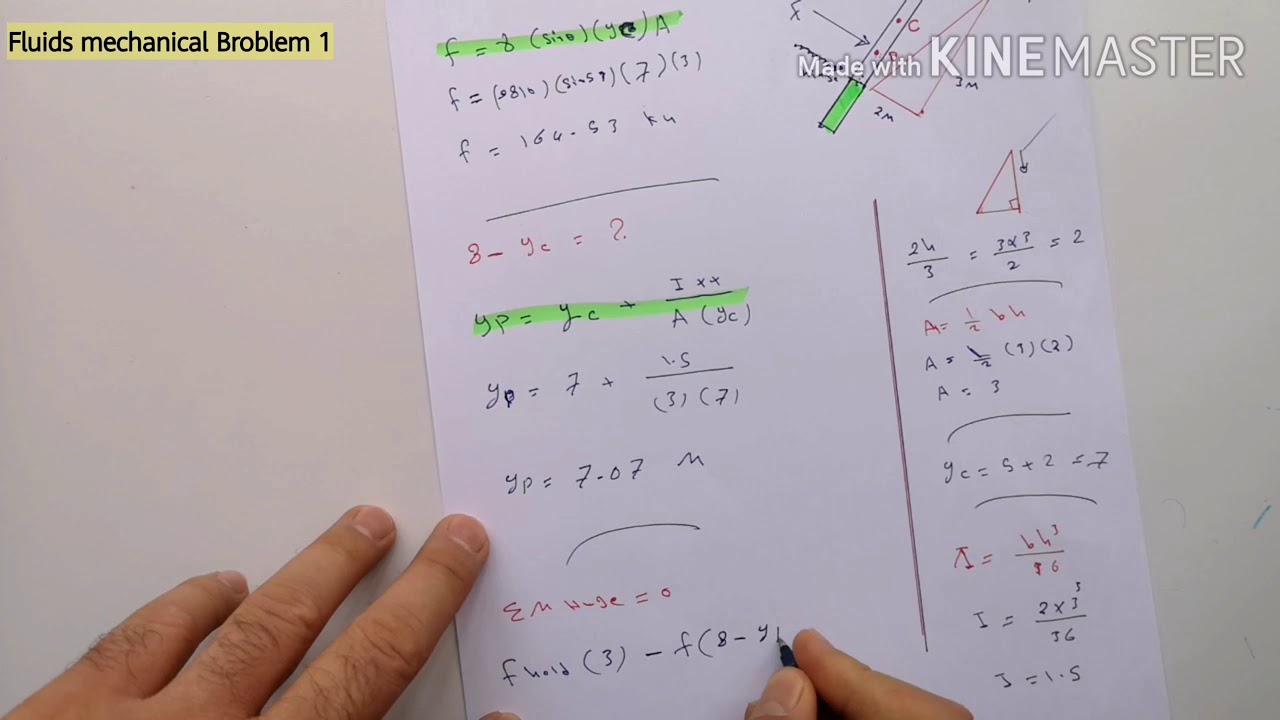 Fluids mechanical Broblem 1
Made with KINEMASTER
f = γ (sinθ)(yc) A
f = (9810)(sin53)(7)(3)
f = 164.53 kN
8 - yc = ?
yp = yc + Ixx / A (yc)
yp = 7 + 1.5 / (3)(7)
yp = 7.07 m
ΣM hinge = 0
f hold (3) - f(8 - y
C
3m
2m
2h/3 = 3×3/2 = 2
A = 1/2 bh
A = 1/2 (3)(2)
A = 3
yc = 5 + 2 = 7
I = bh³/36
I = 2×3³/36
I = 1.5